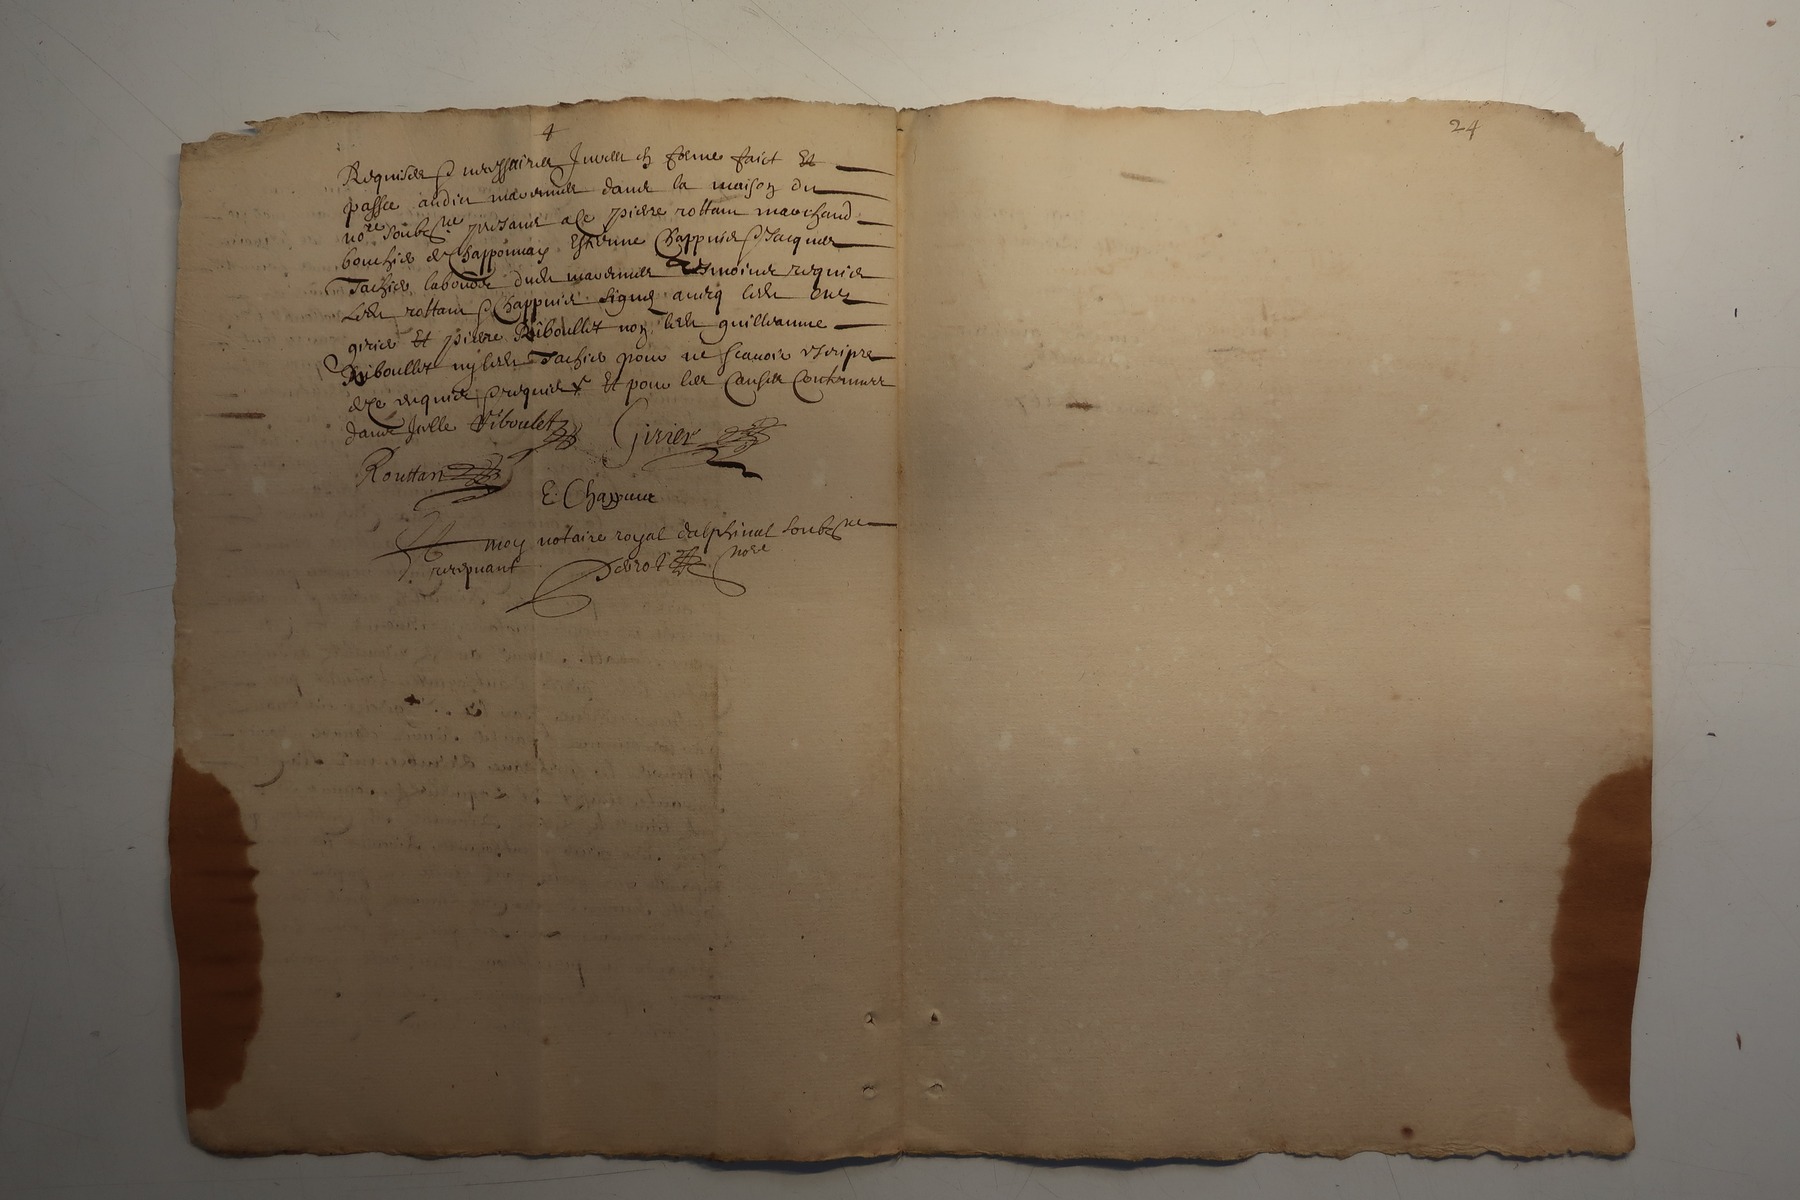 4
Requises & necessaires Jcelles en forme faict Et
passé audict mavernes dans la maison du
nore soubzne presans a ce pierre rottan marchand
bouchier de Chapponnay Estienne Chappuis & Jacques
Tachier laboureur dudit mavernes tesmoings requis
Les rottan & Chappuis signes avecq lesd
girier Et pierre Riboullet non lesd guilleaume
Riboullet ny led Tachier pour ne scavoir escripre
de ce enquis & requis Et pour les Causes Contenues
dans Jcelle Riboulet Girier
Routtan
E. Chappuis
Et moy notaire royal dalphinal soubzne
recepvant nore
24